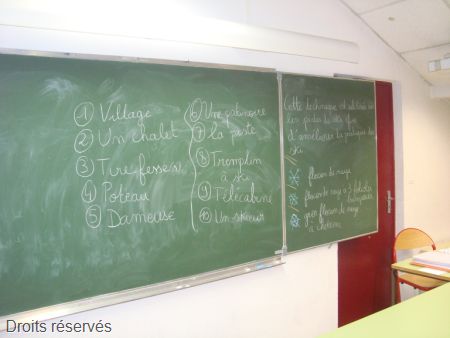 ① Village
② Un chalet
③ Tire fesses
④ Poteau
⑤ Dameuse
⑥ Une patinoire
⑦ la piste
⑧ Tremplin
à ski
⑨ Télécabine
⑩ Un skieur
Cette technique est utilisée sur
les pistes de ski afin
d'améliorer la pratique du
ski
flocon de neige
à 3
flocon de neige
Droits réservés